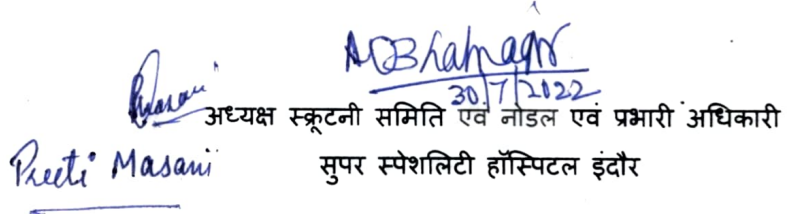 ADBhatnagar
30/7/2022
अध्यक्ष स्क्रूटनी समिति एवं नोडल एवं प्रभारी अधिकारी
Preeti Masani
सुपर स्पेशलिटी हॉस्पिटल इंदौर